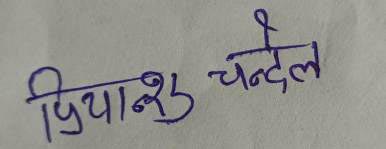 प्रियान्शु चन्देल